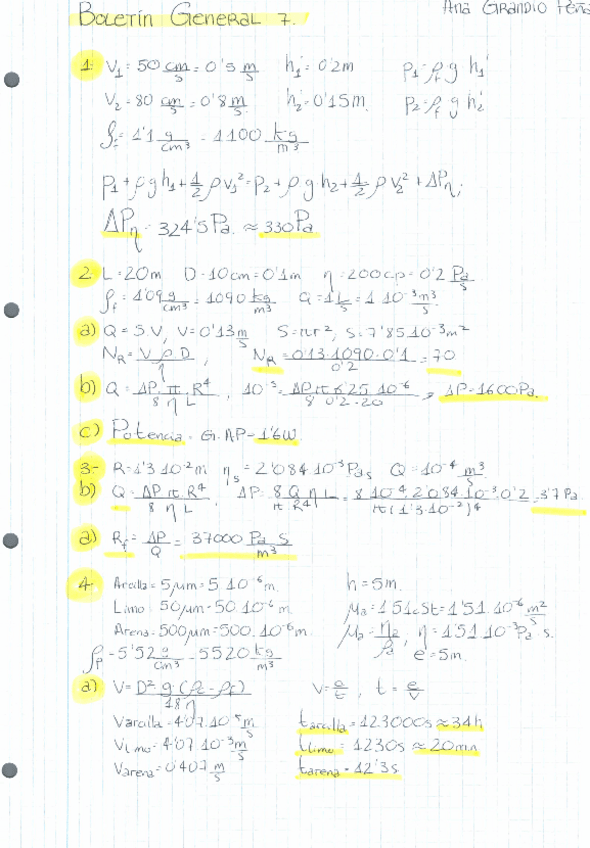 Boletín General 7.
Ana Grandío Peña
1. V₁ = 50 cm/s = 0'5 m/s h₁' = 0'2m P₁ = ρf g h₁'
V₂ = 80 cm/s = 0'8 m/s h₂' = 0'15m. P₂ = ρf g h₂'
ρf = 1'1 g/cm³ = 1100 kg/m³
P₁ + ρgh₁ + 1/2 ρv₁² = P₂ + ρgh₂ + 1/2 ρv₂² + ΔPη;
ΔPη = 324'5 Pa. ≈ 330 Pa
2. L = 20m D = 10cm = 0'1m η = 200cp = 0'2 Pa s
ρf = 1'09 g/cm³ = 1090 kg/m³ Q = 1 L/s = 1 10⁻³ m³/s
a) Q = S·V, V = 0'13 m/s S = πr², S = 7'85 10⁻³ m²
NR = V ρ D / η, NR = 0'13·1090·0'1 / 0'2 = 70
b) Q = ΔP π R⁴ / 8 η L, 10⁻³ = ΔP π 6'25 10⁻⁶ / 8 0'2·20 ⇒ ΔP = 1600 Pa.
c) Potencia = G·ΔP = 1'6W
3.- R = 1'3 10⁻²m ηs = 2'084 10⁻³ Pa s Q = 10⁻⁴ m³/s
b) Q = ΔP π R⁴ / 8 η L, ΔP = 8 Q η L / π R⁴ = 8 10⁻⁴ 2'084 10⁻³ 0'2 / π(1'3·10⁻²)⁴ = 3'7 Pa
a) Rf = ΔP / Q = 37000 Pa S / m³
4. Arcilla = 5μm = 5 10⁻⁶ m h = 5m.
Limo = 50μm = 50 10⁻⁶ m μa = 1'51cSt = 1'51 10⁻⁶ m²/s
Arena = 500μm = 500. 10⁻⁶m μa = ηa / ρa, η = 1'51 10⁻³ Pa·s.
ρp = 5'52 g/cm³ = 5520 kg/m³ e = 5m.
a) V = D² g (ρt - ρf) / 18η V = e/t, t = e/v
Varcilla = 4'07 10⁻⁵ m/s tarcilla = 123000s ≈ 34h
Vlimo = 4'07 10⁻³ m/s tlimo = 1230s ≈ 20min
Varena = 0'407 m/s tarena = 12'3s